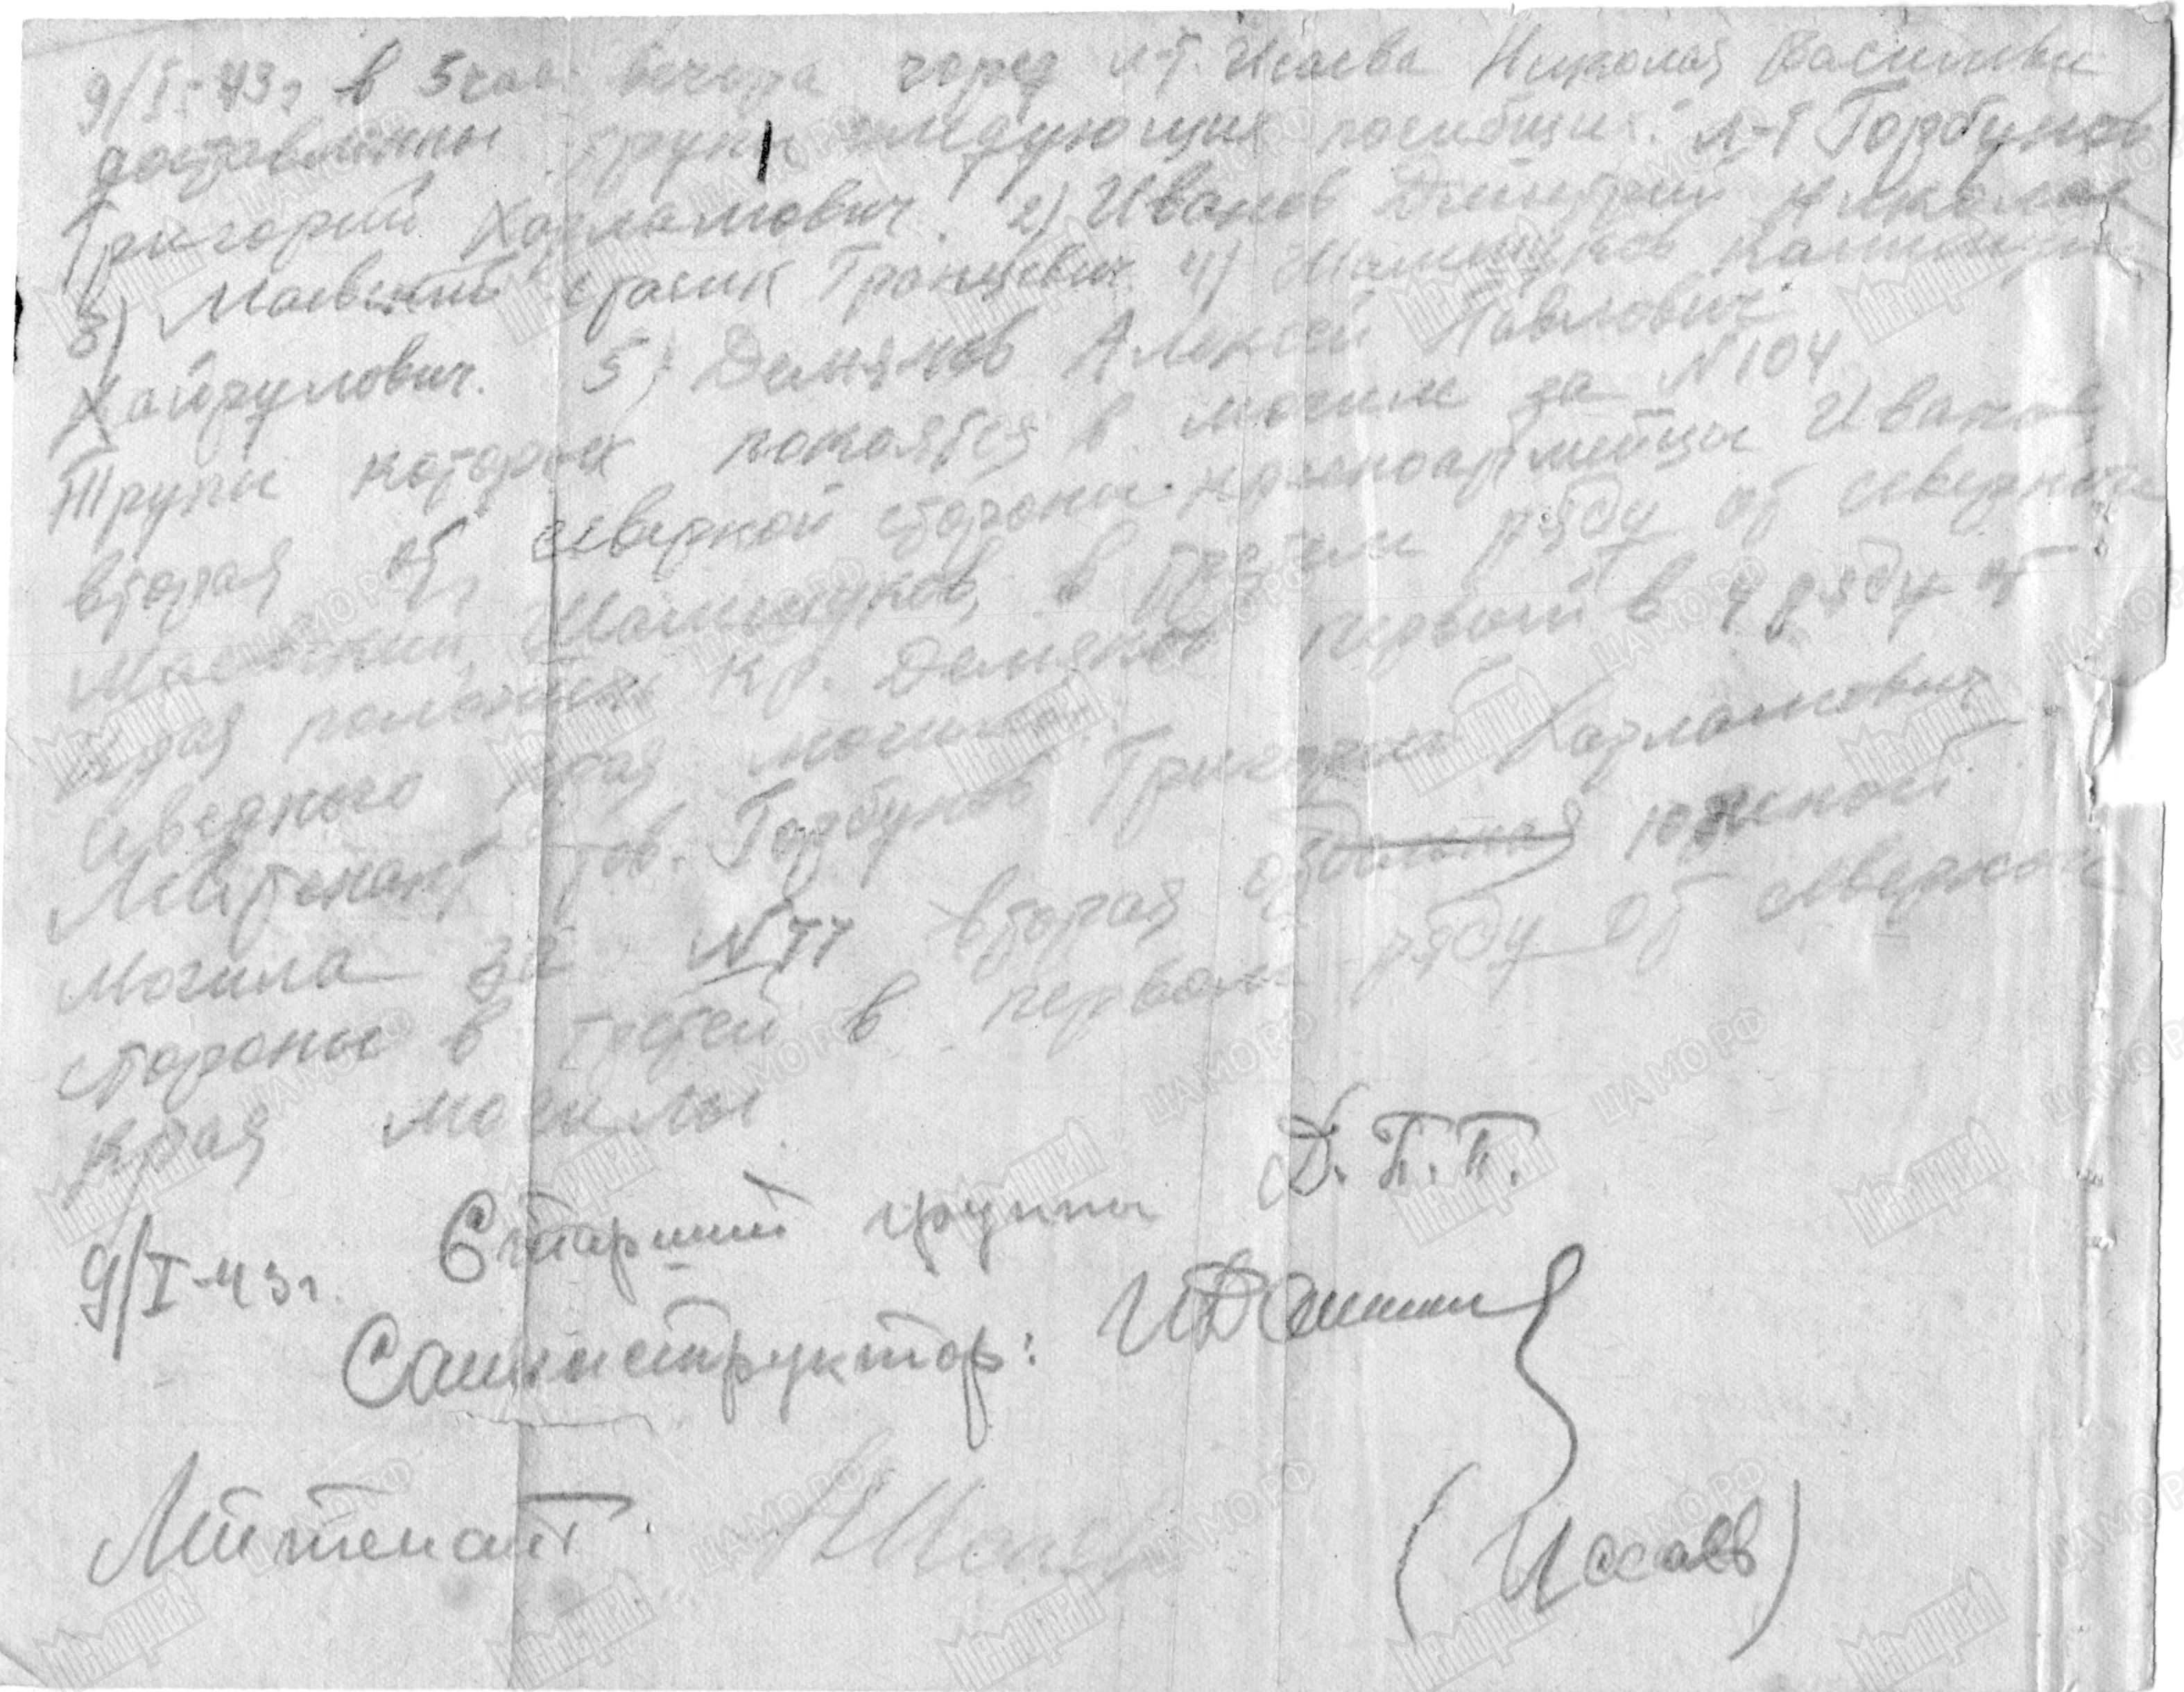 9/I-43г в 5 час. вечера через л-т. Исаева Николая Васильеви
доставленны трупы следующих погибших: л-т Горбунов
Григорий Харламович. 2) Иванов Дмитрий Николае
3) Маевский Стасик Францевич 4)
Хайрулович. 5) Демянов Алексей Павлович
Трупы которых покоятся в могиле за N 104
вторая от северной стороны. красноармейцы Иванов
Маевский, в третем ряду от северного
края могилы. кр. Демянов первый в 4 ряду от
северного края могилы.
Лейтенант тов. Горбунов Григорий Харламович
могила за N 77 вторая от южной
стороны в третей в первом ряду от северного
края могилы
9/I-43г. Старший группы Д.П.П.
Санинструктор:
Лейтенант (Исаев)
ЦАМО РФ
Мемориал